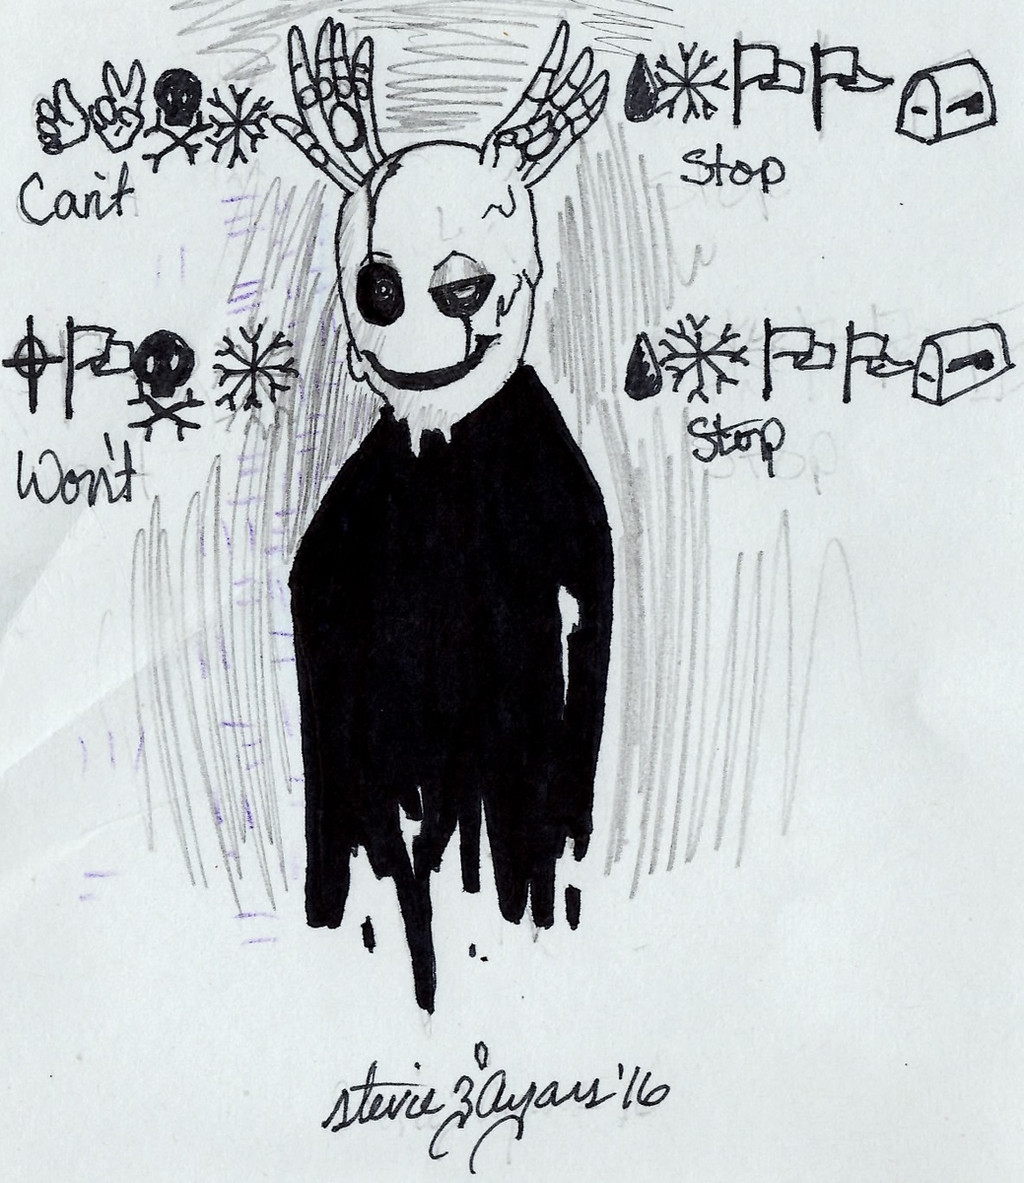 Can't
Stop
Won't
Stop
stevie Ayars '16